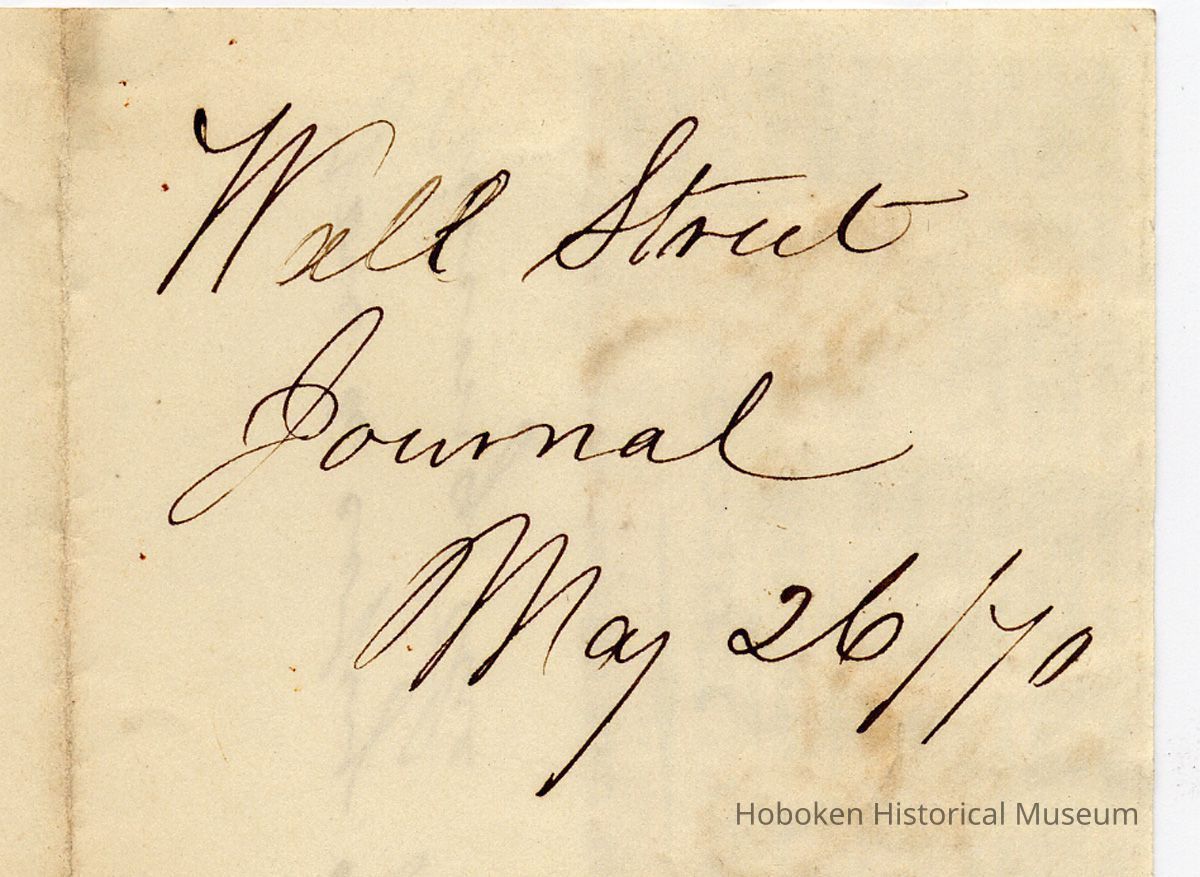 Wall Street
Journal
May 26/70
Hoboken Historical Museum